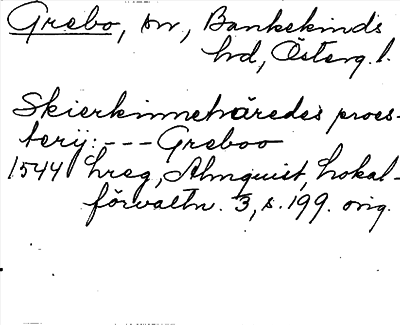 Grebo, sn, Bankekinds
hd, Österg. l.
Skierkinnehäredes proes-
terij: --- Greboo
1544 hreg, Almquist, Lokal-
förvaltn. 3, s. 199. orig.